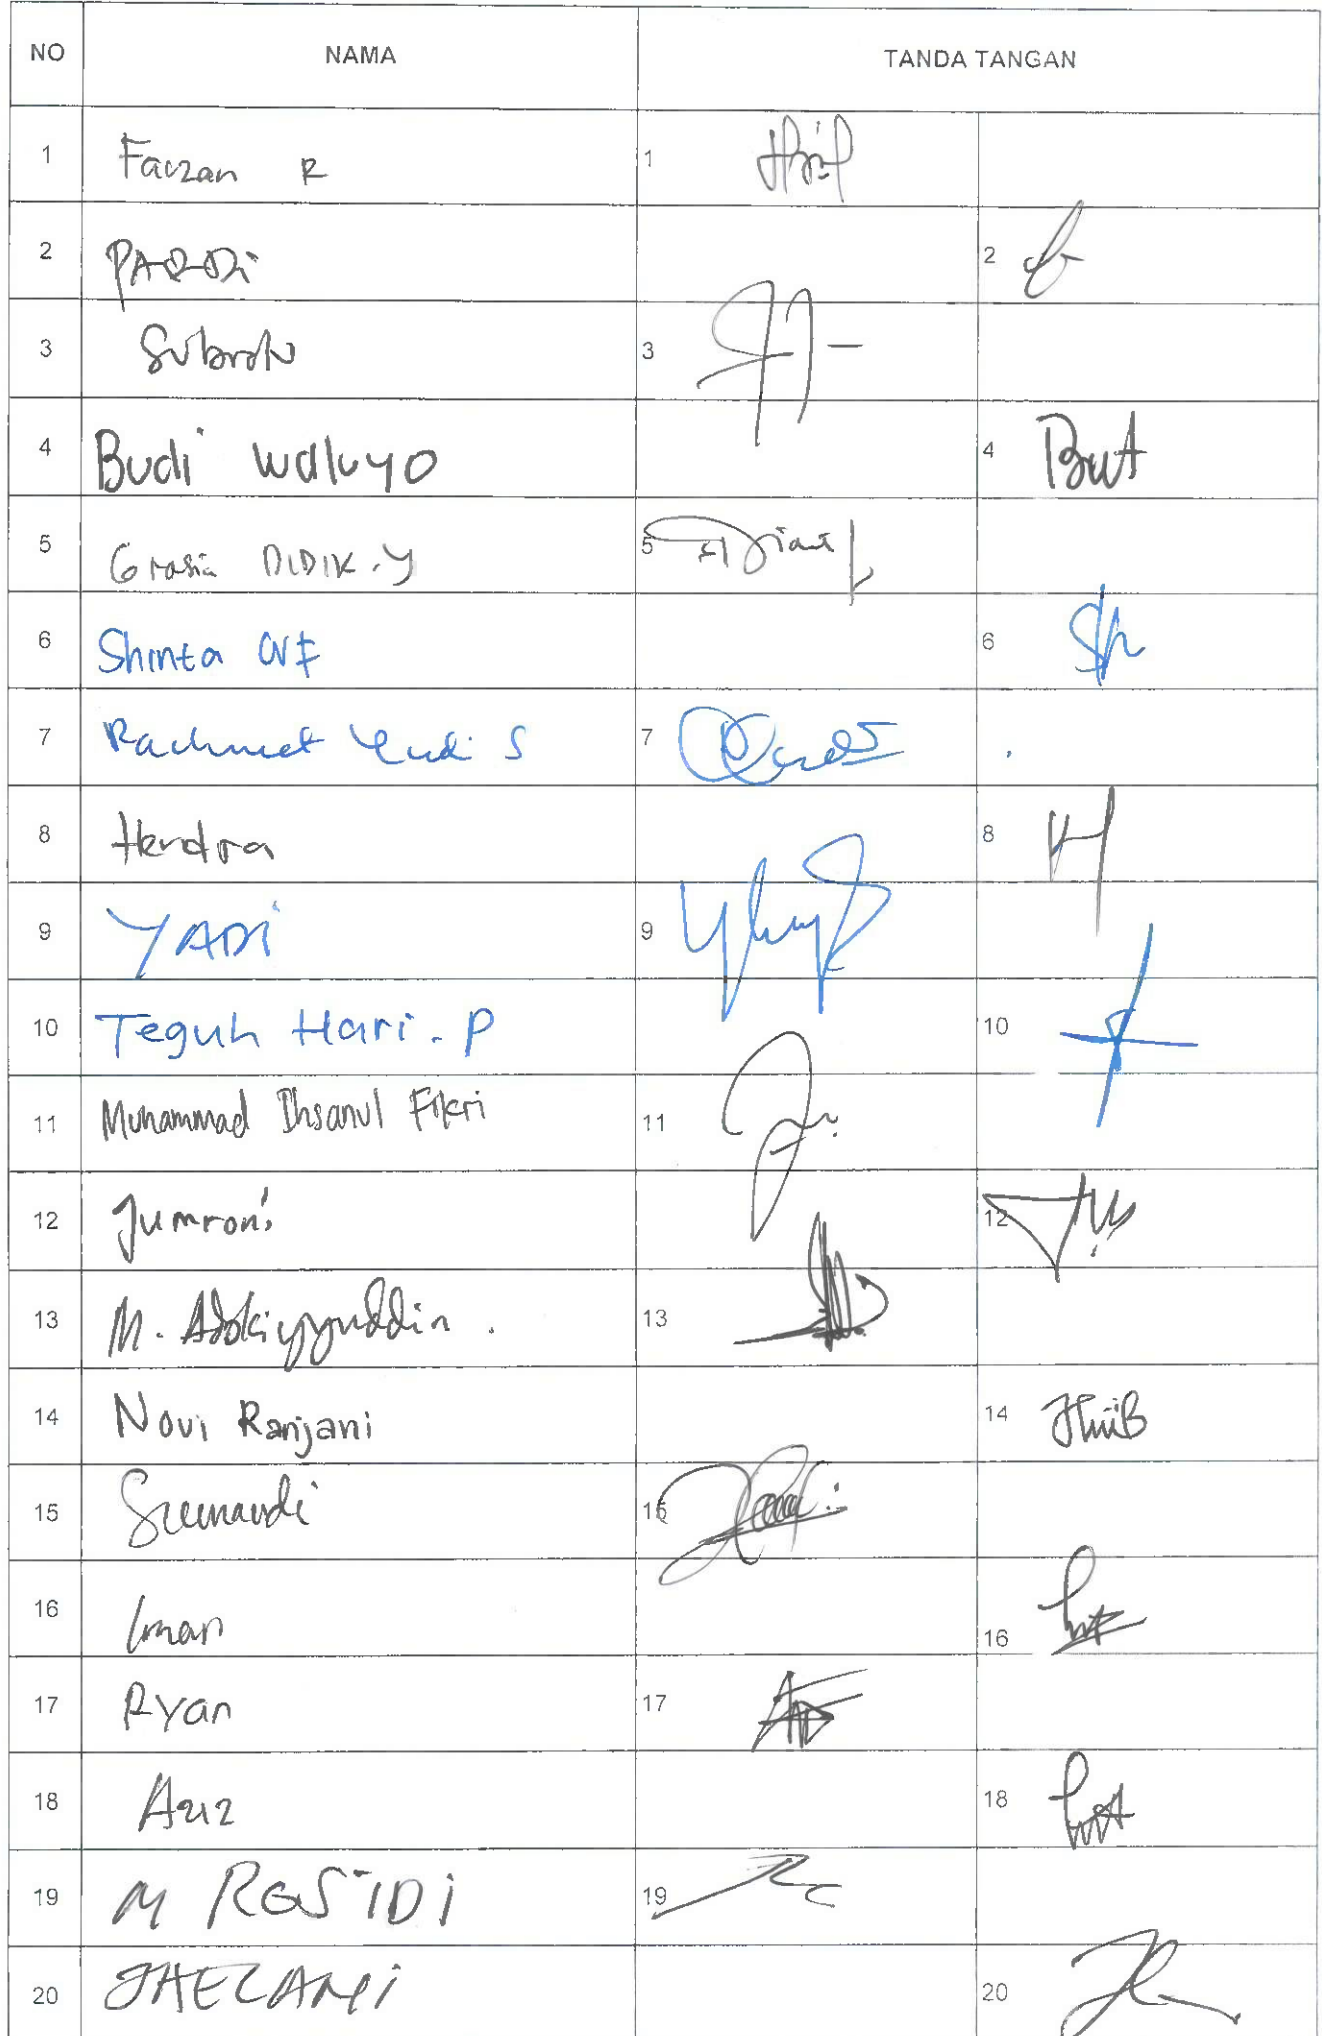 NO NAMA TANDA TANGAN
1 Fauzan R 1
2 PARDi 2
3 Subroto 3
4 Budi Waluyo 4
5 Grasia DIDIK.Y 5
6 Shinta 6
7 Rachmat Yudi S 7
8 Hendra 8
9 YADI 9
10 Teguh Hari. P 10
11 Muhammad Ihsanul Fikri 11
12 Jumroni 12
13 M. Adzkiyyuddin . 13
14 Novi Ranjani 14
15 15
16 Iman 16
17 Ryan 17
18 Aziz 18
19 M ROSIDI 19
20 JHELANI 20